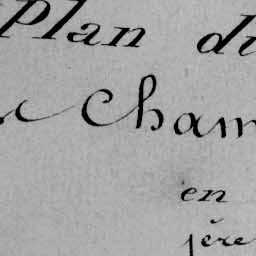 Plan du
Cham
en
1ère